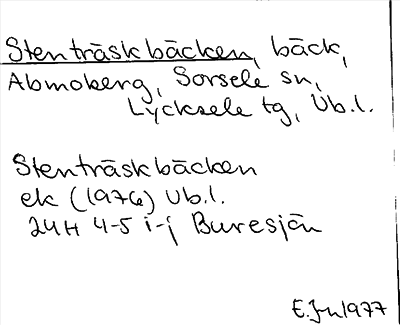 Stenträskbäcken, bäck,
Abmoberg, Sorsele sn,
Lycksele tg, Vb.l.
Stenträskbäcken
ek (1976) Vb.l.
24H 4-5 i-j Buresjön
1977